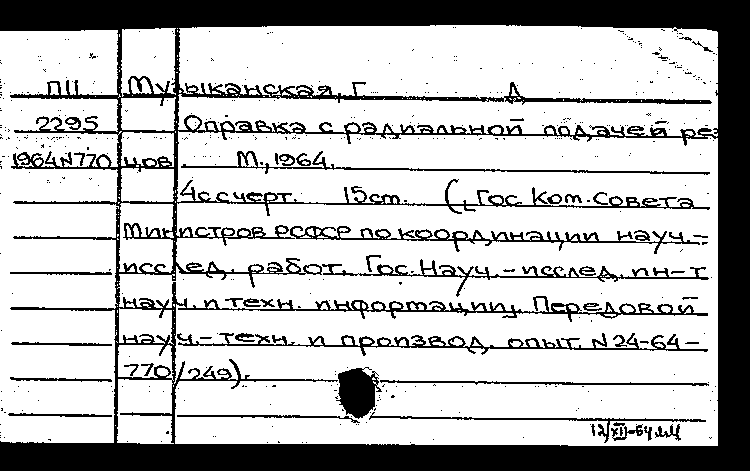 П11 Музыканская, Г Д
2295 Оправка с радиальной подачей рез
1964N770 цов. М., 1964.
4с с черт. 15 cm. ([Гос Ком. Совета
Министров РСФСР по координации науч.-
исслед. работ. Гос. Науч.-исслед. ин-т
науч. и техн. информации]. Передовой
науч.-техн. и производ. опыт. N 24-64-
770/249).
12/XII-64